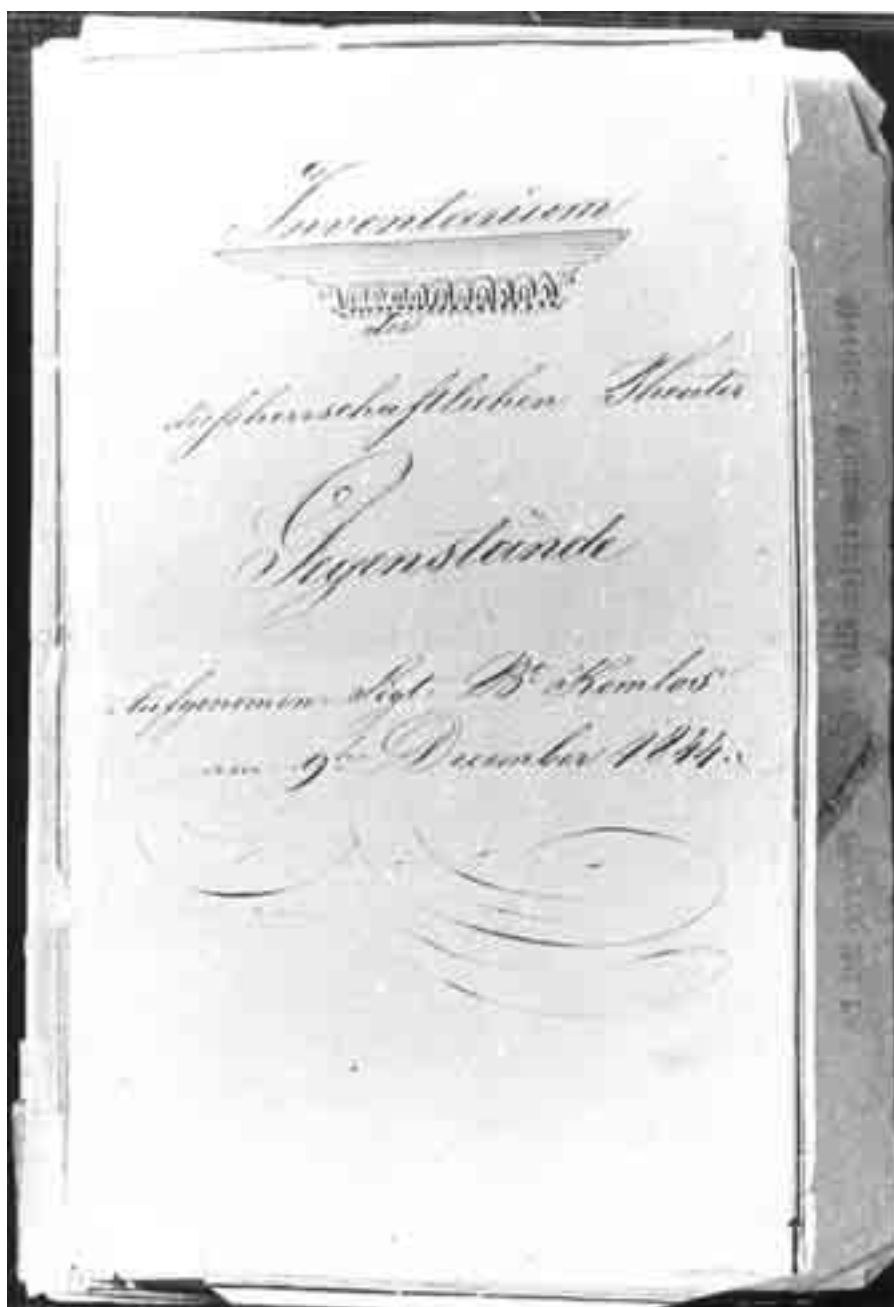 Inventarium
der
dießherrschaftlichen Theater
Gegenstände
Aufgenomen Sigl. Bt. Komlos
am 9ten December 1844.